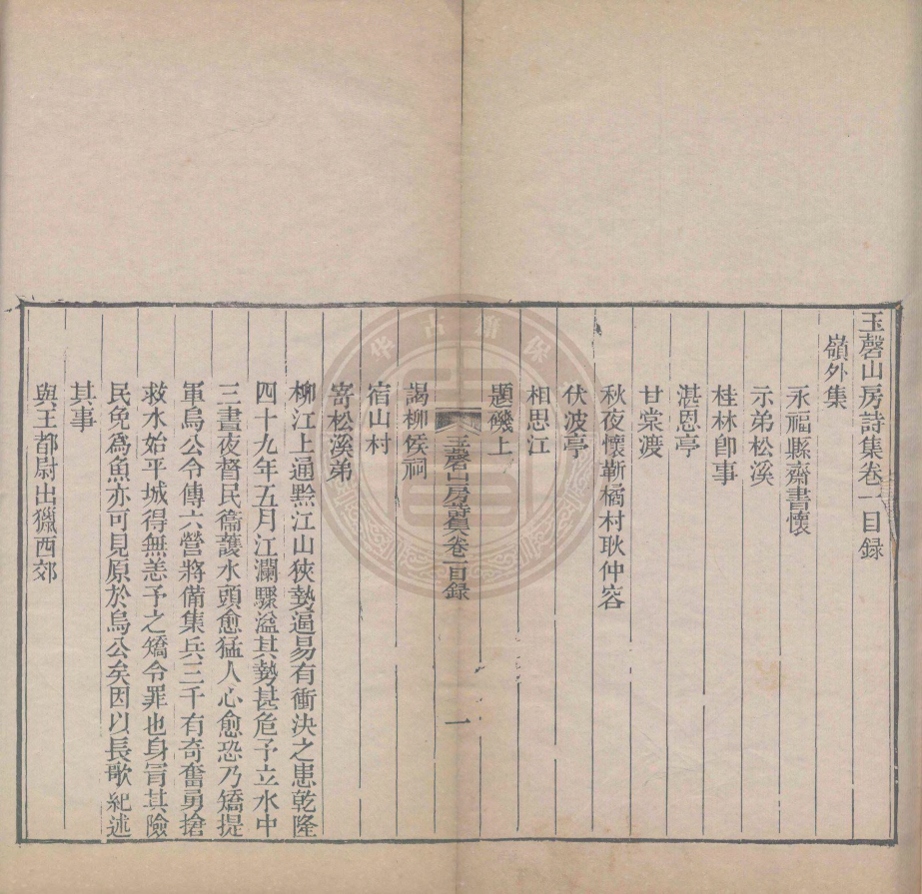 玉磬山房詩集卷一目録
嶺外集
永福縣齋書懷
示弟松溪
桂林卽事
湛恩亭
甘棠渡
秋夜懷靳橘村耿仲容
伏波亭
相思江
題磯上
玉磬山房詩集卷一目録 一
謁柳侯祠
宿山村
寄松溪弟
柳江上通黔江山狹勢逼易有衝決之患乾隆
四十九年五月江瀾驟溢其勢甚危予立水中
三晝夜督民衞護水頭愈猛人心愈恐乃矯提
軍烏公令傳六營將備集兵三千有奇奮勇搶
救水始平城得無恙予之矯令罪也身冐其險
民免爲魚亦可見原於烏公矣因以長歌紀述
其事
與王都尉出獵西郊